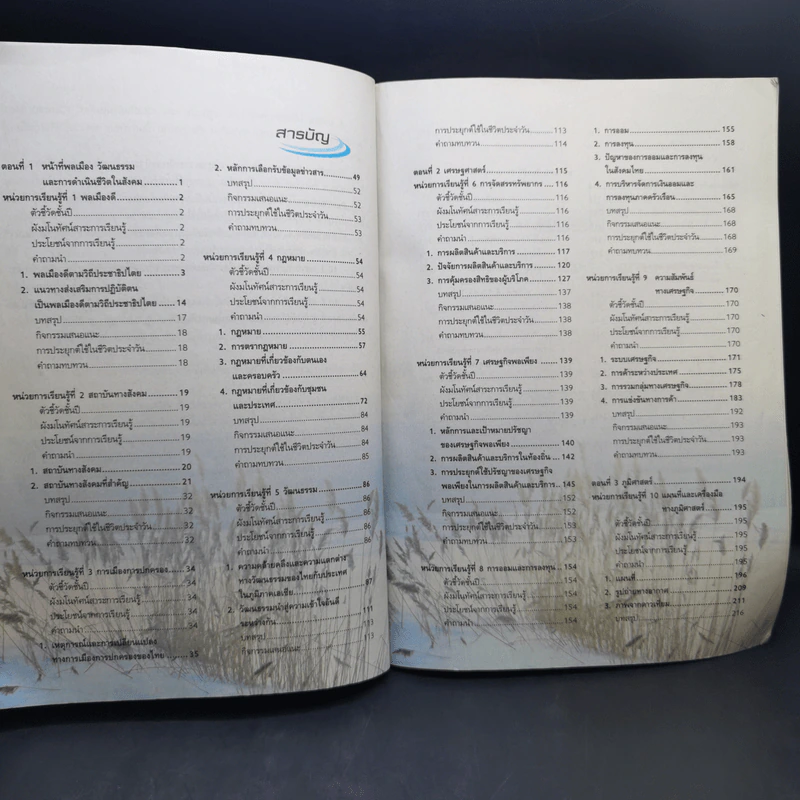 สารบัญ
ตอนที่ 1 หน้าที่พลเมือง วัฒนธรรม
และการดำเนินชีวิตในสังคม ........... 1
หน่วยการเรียนรู้ที่ 1 พลเมืองดี ........... 2
ตัวชี้วัดชั้นปี ........... 2
ผังมโนทัศน์สาระการเรียนรู้ ........... 2
ประโยชน์จากการเรียนรู้ ........... 2
คำถามนำ ........... 2
1. พลเมืองดีตามวิถีประชาธิปไตย ........... 3
2. แนวทางส่งเสริมการปฏิบัติตน
เป็นพลเมืองดีตามวิถีประชาธิปไตย ..... 14
บทสรุป ........... 17
กิจกรรมเสนอแนะ ........... 18
การประยุกต์ใช้ในชีวิตประจำวัน ........... 18
คำถามทบทวน ........... 18
หน่วยการเรียนรู้ที่ 2 สถาบันทางสังคม ........... 19
ตัวชี้วัดชั้นปี ........... 19
ผังมโนทัศน์สาระการเรียนรู้ ........... 19
ประโยชน์จากการเรียนรู้ ........... 19
คำถามนำ ........... 19
1. สถาบันทางสังคม ........... 20
2. สถาบันทางสังคมที่สำคัญ ........... 21
บทสรุป ........... 32
กิจกรรมเสนอแนะ ........... 32
การประยุกต์ใช้ในชีวิตประจำวัน ........... 32
คำถามทบทวน ........... 32
หน่วยการเรียนรู้ที่ 3 การเมืองการปกครอง ..... 34
ตัวชี้วัดชั้นปี ........... 34
ผังมโนทัศน์สาระการเรียนรู้ ........... 34
ประโยชน์จากการเรียนรู้ ........... 34
คำถามนำ ........... 34
1. เหตุการณ์และการเปลี่ยนแปลง
ทางการเมืองการปกครองของไทย ....... 35
2. หลักการเลือกรับข้อมูลข่าวสาร ........... 49
บทสรุป ........... 52
กิจกรรมเสนอแนะ ........... 52
การประยุกต์ใช้ในชีวิตประจำวัน ........... 53
คำถามทบทวน ........... 53
หน่วยการเรียนรู้ที่ 4 กฎหมาย ........... 54
ตัวชี้วัดชั้นปี ........... 54
ผังมโนทัศน์สาระการเรียนรู้ ........... 54
ประโยชน์จากการเรียนรู้ ........... 54
คำถามนำ ........... 54
1. กฎหมาย ........... 55
2. การตรากฎหมาย ........... 57
3. กฎหมายที่เกี่ยวข้องกับตนเอง
และครอบครัว ........... 64
4. กฎหมายที่เกี่ยวข้องกับชุมชน
และประเทศ ........... 72
บทสรุป ........... 84
กิจกรรมเสนอแนะ ........... 84
การประยุกต์ใช้ในชีวิตประจำวัน ........... 84
คำถามทบทวน ........... 85
หน่วยการเรียนรู้ที่ 5 วัฒนธรรม ........... 86
ตัวชี้วัดชั้นปี ........... 86
ผังมโนทัศน์สาระการเรียนรู้ ........... 86
ประโยชน์จากการเรียนรู้ ........... 86
คำถามนำ ........... 86
1. ความคล้ายคลึงและความแตกต่าง
ทางวัฒนธรรมของไทยกับประเทศ
ในภูมิภาคเอเชีย ........... 87
2. วัฒนธรรมนำสู่ความเข้าใจอันดี
ระหว่างกัน ........... 111
บทสรุป ........... 113
กิจกรรมเสนอแนะ ........... 113
การประยุกต์ใช้ในชีวิตประจำวัน ........... 113
คำถามทบทวน ........... 114
ตอนที่ 2 เศรษฐศาสตร์ ........... 115
หน่วยการเรียนรู้ที่ 6 การจัดสรรทรัพยากร ..... 116
ตัวชี้วัดชั้นปี ........... 116
ผังมโนทัศน์สาระการเรียนรู้ ........... 116
ประโยชน์จากการเรียนรู้ ........... 116
คำถามนำ ........... 116
1. การผลิตสินค้าและบริการ ........... 117
2. ปัจจัยการผลิตสินค้าและบริการ ........... 120
3. การคุ้มครองสิทธิของผู้บริโภค ........... 127
บทสรุป ........... 137
กิจกรรมเสนอแนะ ........... 138
การประยุกต์ใช้ในชีวิตประจำวัน ........... 138
คำถามทบทวน ........... 138
หน่วยการเรียนรู้ที่ 7 เศรษฐกิจพอเพียง ........... 139
ตัวชี้วัดชั้นปี ........... 139
ผังมโนทัศน์สาระการเรียนรู้ ........... 139
ประโยชน์จากการเรียนรู้ ........... 139
คำถามนำ ........... 139
1. หลักการและเป้าหมายปรัชญา
ของเศรษฐกิจพอเพียง ........... 140
2. การผลิตสินค้าและบริการในท้องถิ่น .. 142
3. การประยุกต์ใช้ปรัชญาของเศรษฐกิจ
พอเพียงในการผลิตสินค้าและบริการ.. 145
บทสรุป ........... 152
กิจกรรมเสนอแนะ ........... 153
การประยุกต์ใช้ในชีวิตประจำวัน ........... 153
คำถามทบทวน ........... 153
หน่วยการเรียนรู้ที่ 8 การออมและการลงทุน .. 154
ตัวชี้วัดชั้นปี ........... 154
ผังมโนทัศน์สาระการเรียนรู้ ........... 154
ประโยชน์จากการเรียนรู้ ........... 154
คำถามนำ ........... 154
1. การออม ........... 155
2. การลงทุน ........... 158
3. ปัญหาของการออมและการลงทุน
ในสังคมไทย ........... 161
4. การบริหารจัดการเงินออมและ
การลงทุนภาคครัวเรือน ........... 165
บทสรุป ........... 168
กิจกรรมเสนอแนะ ........... 168
การประยุกต์ใช้ในชีวิตประจำวัน ........... 168
คำถามทบทวน ........... 169
หน่วยการเรียนรู้ที่ 9 ความสัมพันธ์
ทางเศรษฐกิจ ........... 170
ตัวชี้วัดชั้นปี ........... 170
ผังมโนทัศน์สาระการเรียนรู้ ........... 170
ประโยชน์จากการเรียนรู้ ........... 170
คำถามนำ ........... 170
1. ระบบเศรษฐกิจ ........... 171
2. การค้าระหว่างประเทศ ........... 175
3. การรวมกลุ่มทางเศรษฐกิจ ........... 178
4. การแข่งขันทางการค้า ........... 183
บทสรุป ........... 192
กิจกรรมเสนอแนะ ........... 192
การประยุกต์ใช้ในชีวิตประจำวัน ........... 193
คำถามทบทวน ........... 193
ตอนที่ 3 ภูมิศาสตร์ ........... 194
หน่วยการเรียนรู้ที่ 10 แผนที่และเครื่องมือ
ทางภูมิศาสตร์ ........... 195
ตัวชี้วัดชั้นปี ........... 195
ผังมโนทัศน์สาระการเรียนรู้ ........... 195
ประโยชน์จากการเรียนรู้ ........... 195
คำถามนำ ........... 195
1. แผนที่ ........... 196
2. รูปถ่ายทางอากาศ ........... 209
3. ภาพจากดาวเทียม ........... 211
บทสรุป ........... 216